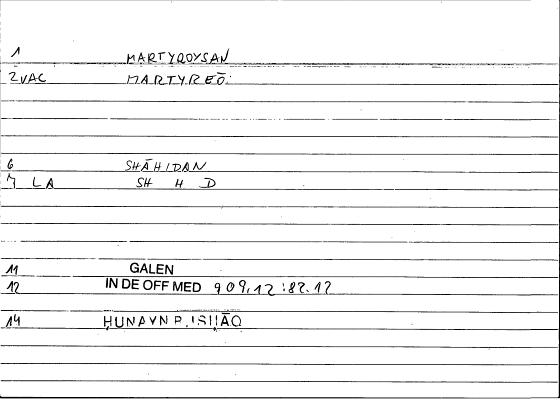 1 MARTYROYSAN
2 VAC MARTYREŌ:
6 SHĀHIDAN
7 LA SH H D
11 GALEN
12 IN DE OFF MED 909,12:82.12
14 ḤUNAYN B. ISḤĀQ